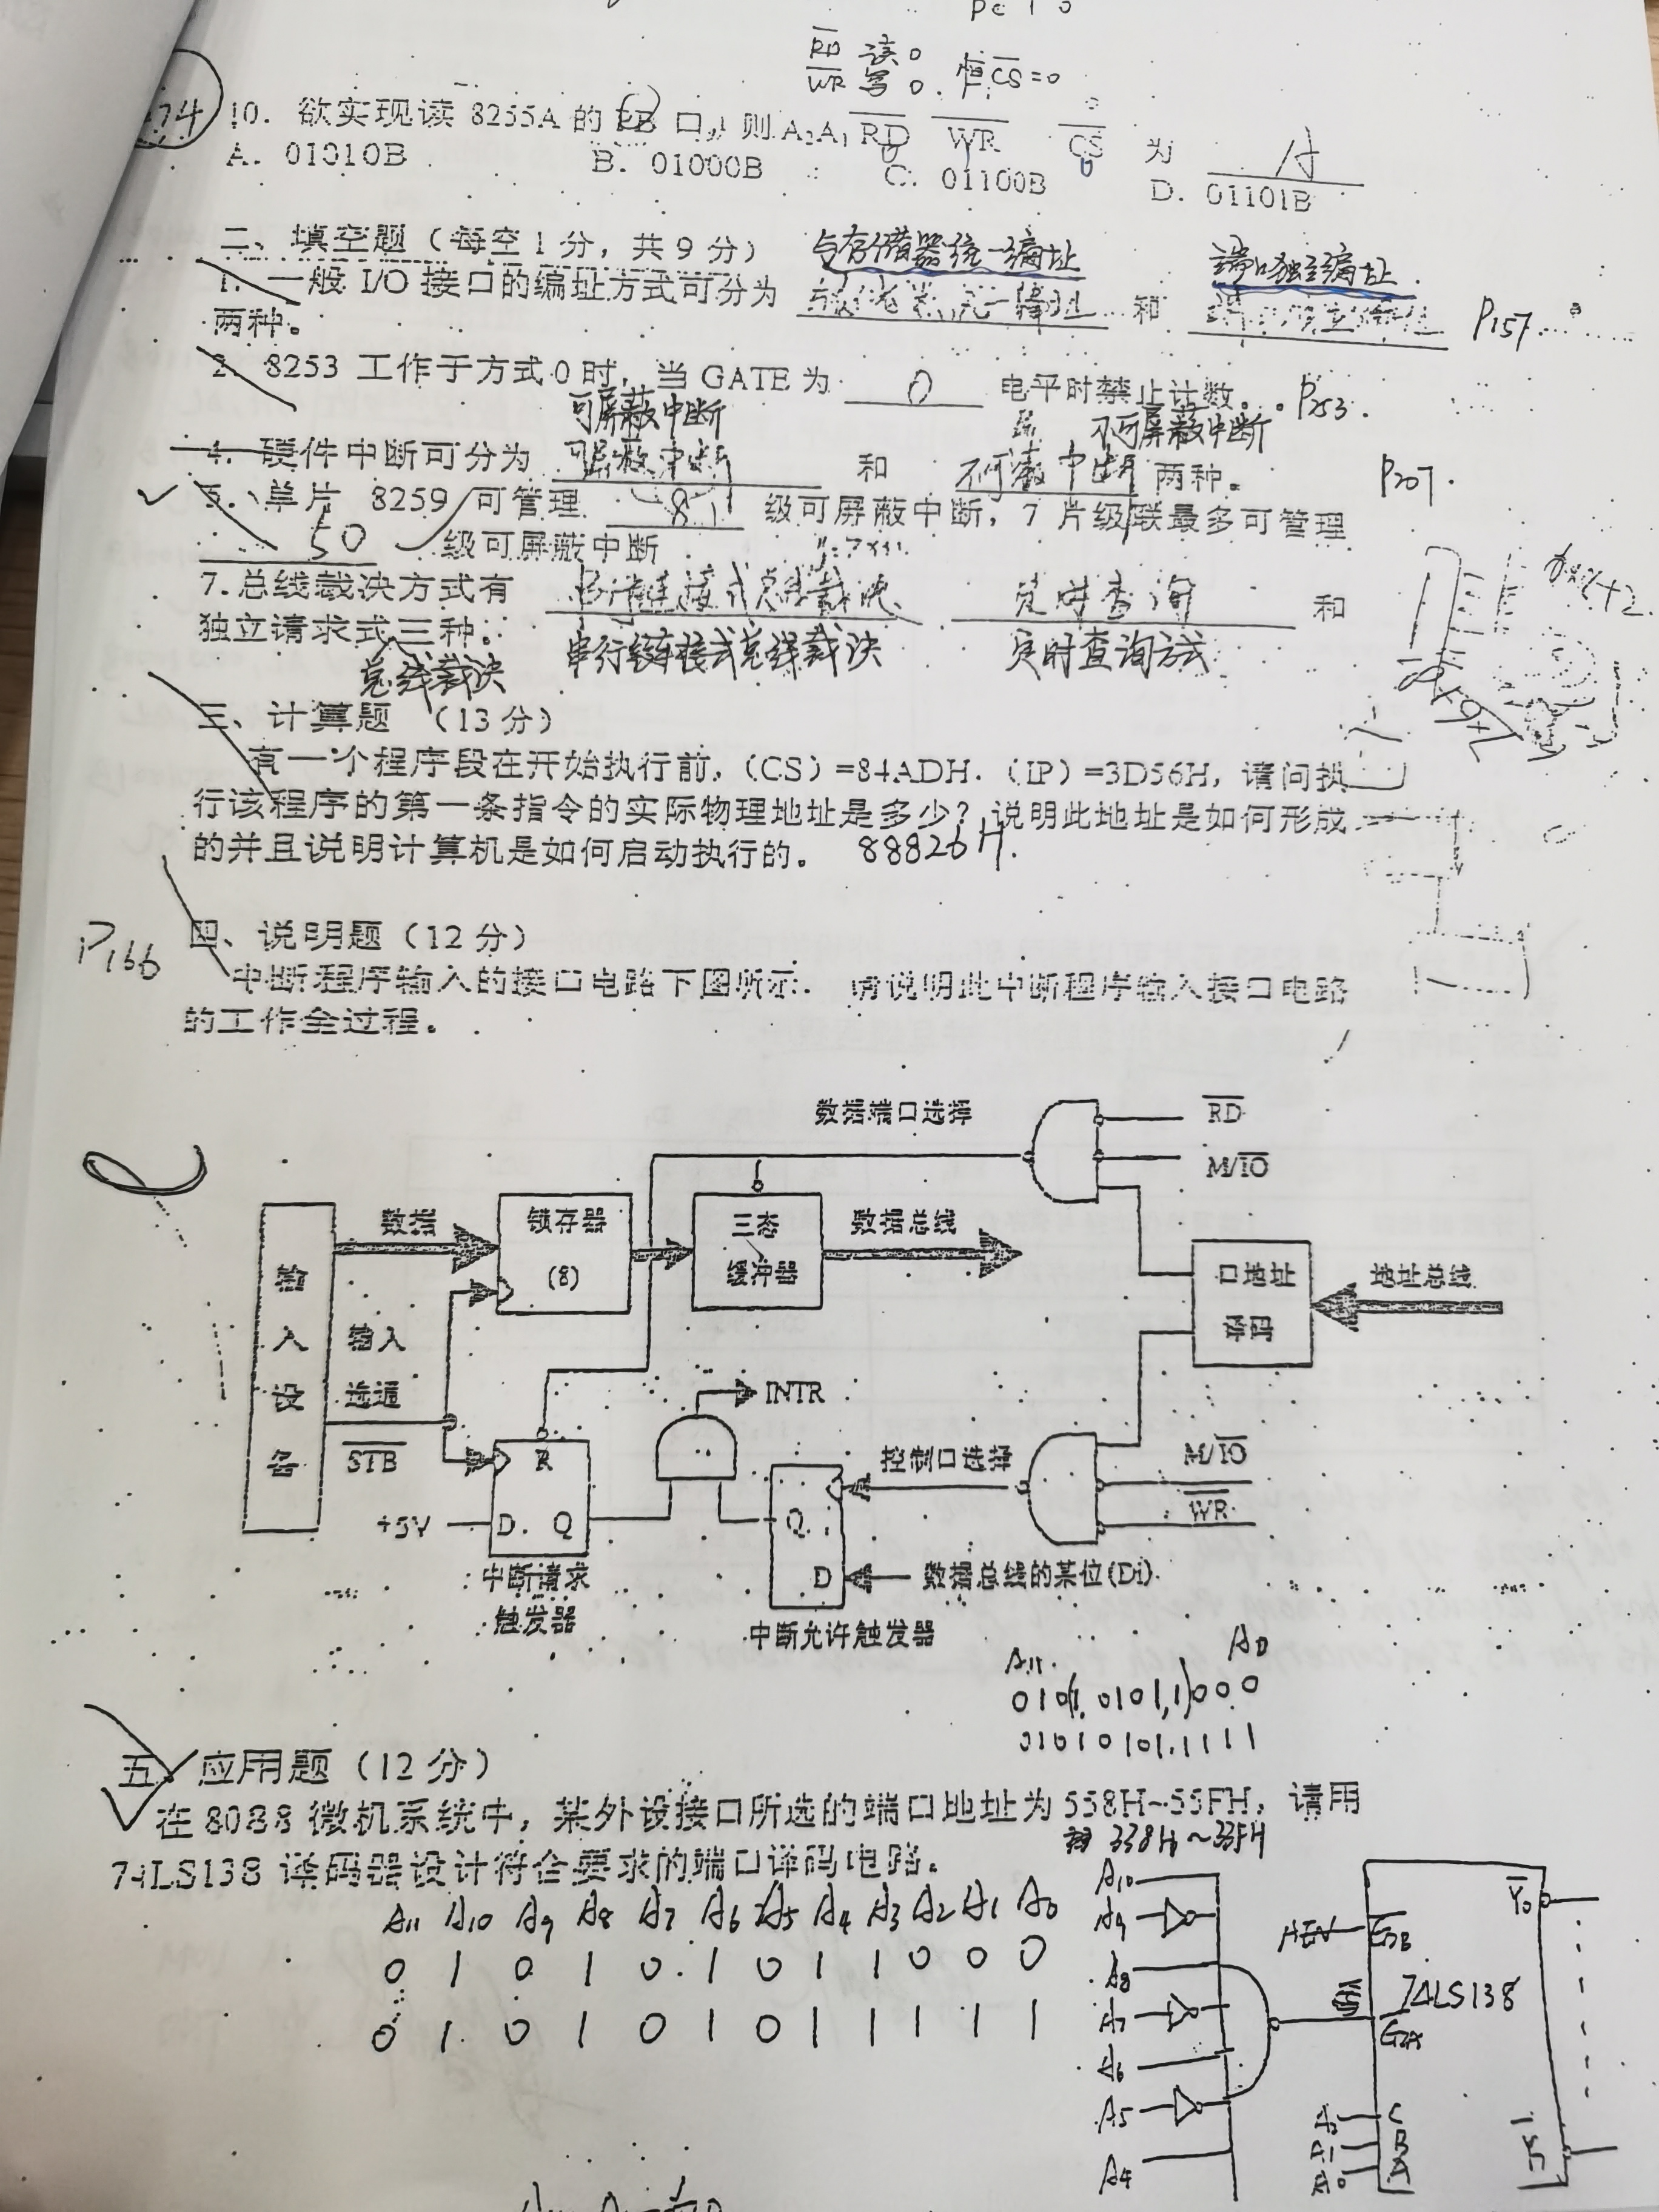 RD 读 0
WR 写 0. 恒CS=0
10. 欲实现读 8255A 的 PB 口,则 A₂A₁ RD WR CS 为 A
A. 01010B B. 01000B C. 01100B D. 01101B
二、填空题(每空1分,共9分)
与存储器统一编址 端口独立编址
1. 一般 I/O 接口的编址方式可分为 和 P157
两种。
2. 8253 工作于方式 0 时,当 GATE 为 0 电平时禁止计数。P253.
可屏蔽中断 不可屏蔽中断
4. 硬件中断可分为 可屏蔽中断 和 不可屏蔽中断 两种。 P207.
5. 单片 8259 可管理 8 级可屏蔽中断,7 片级联最多可管理
50 级可屏蔽中断
7.总线裁决方式有 串行链接式总线裁决、 定时查询 和
独立请求式三种。
总线裁决 串行链接式总线裁决 定时查询方式
三、计算题 (13分)
有一个程序段在开始执行前,(CS)=84ADH.(IP)=3D56H,请问执
行该程序的第一条指令的实际物理地址是多少?说明此地址是如何形成
的并且说明计算机是如何启动执行的。 88826H.
P166
四、说明题(12分)
中断程序输入的接口电路下图所示. 请说明此中断程序输入接口电路
的工作全过程。
数据端口选择 RD
M/IO
输入设备 数据 锁存器 (8) 三态缓冲器 数据总线
口地址译码 地址总线
输入选通 STB
INTR
R
+5V D Q
中断请求触发器
控制口选择 M/IO
WR
Q
D 数据总线的某位(Di)
中断允许触发器
A11 A0
0101,0101,1000
01010101.1111
五、应用题(12分)
在 8088 微机系统中,某外设接口所选的端口地址为 558H~55FH,请用
338H~33FH
74LS138 译码器设计符合要求的端口译码电路。
A11 A10 A9 A8 A7 A6 A5 A4 A3 A2 A1 A0
0 1 0 1 0 1 0 1 1 0 0 0
0 1 0 1 0 1 0 1 1 1 1 1
A10
A9
A8
A7
A6
A5
A4
AEN G2B
74LS138
G2A
C
A1 B
A0 A
Y0